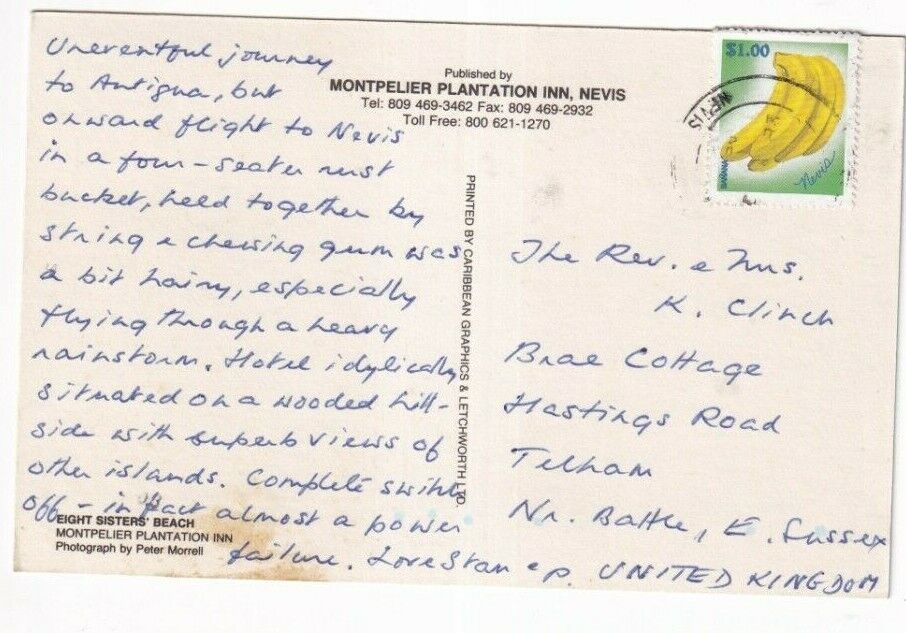 Uneventful journey
to Antigua, but
onward flight to Nevis
in a four-seater rust
bucket, held together by
string & chewing gum was
a bit hairy, especially
flying through a heavy
rainstorm. Hotel idylically
situated on a wooded hill-
side with superb views of
other islands. Complete switch
off - in fact almost a power
failure. Love Stan & P.
EIGHT SISTERS' BEACH
MONTPELIER PLANTATION INN
Photograph by Peter Morrell
Published by
MONTPELIER PLANTATION INN, NEVIS
Tel: 809 469-3462 Fax: 809 469-2932
Toll Free: 800 621-1270
PRINTED BY CARIBBEAN GRAPHICS & LETCHWORTH LTD.
$1.00
Nevis
NEVIS
The Rev. & Mrs.
K. Clinch
Brae Cottage
Hastings Road
Telham
Nr. Battle, E. Sussex
UNITED KINGDOM